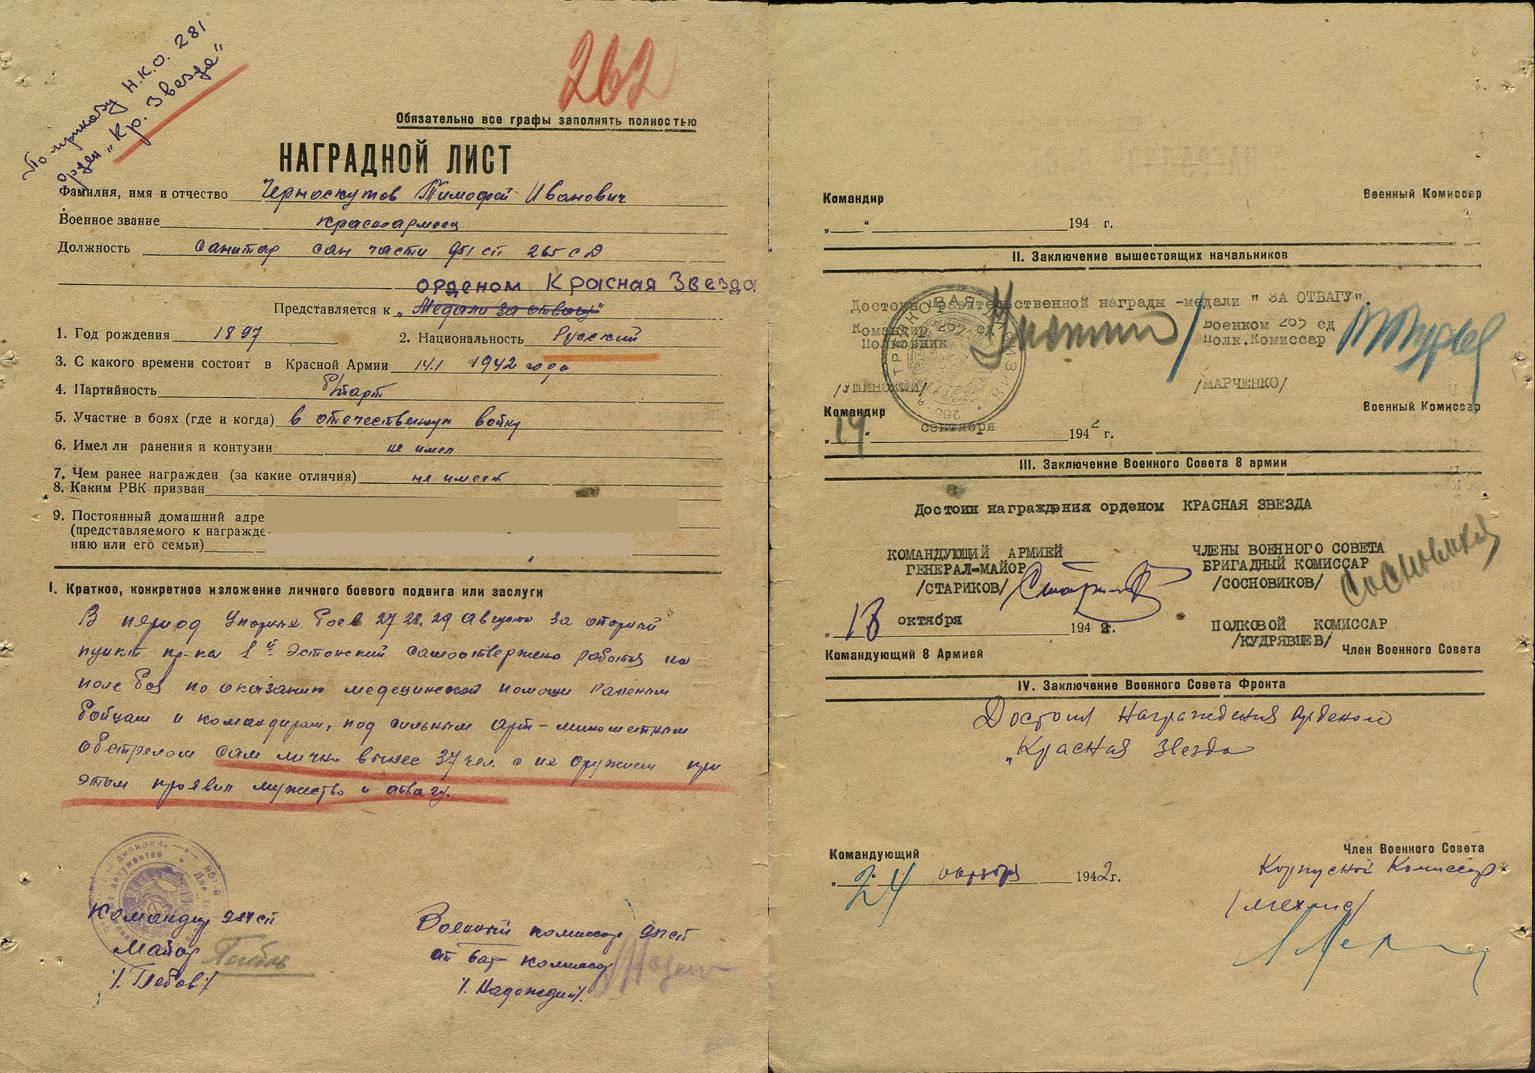 По приказу Н.К.О. 281
орден „Кр. Звезда"
262
Обязательно все графы заполнять полностью
НАГРАДНОЙ ЛИСТ
Фамилия, имя и отчество Черноскутов Тимофей Иванович
Военное звание красноармеец
Должность Санитар сан части 951 сп 265 с д
орденом Красная Звезда
Представляется к „Медали за отвагу"
1. Год рождения 1897 2. Национальность Русский
3. С какого времени состоит в Красной Армии 14.1 1942 года
4. Партийность б/парт
5. Участие в боях (где и когда) в отечественную войну
6. Имел ли ранения и контузии не имел
7. Чем ранее награжден (за какие отличия) не имеет
8. Каким РВК призван
9. Постоянный домашний адре
(представляемого к награжде-
нию или его семьи)
I. Краткое, конкретное изложение личного боевого подвига или заслуги
В период упорных боев 27 28. 29 Августа за опорный
пункт пр-ка 1й Эстонский самоотвержено работая на
поле боя по оказанию медецинской помощи раненым
бойцам и командирам, под сильным арт-минометным
обстрелом сам лично вынес 37 чел. с их оружием при
этом проявил мужество и отвагу.
Командир 951 сп
Майор
Военный комиссар 951 сп
ст бат комиссар
/. Надождий/.
Командир Военный Комиссар
„ " 194 г.
II. Заключение вышестоящих начальников
Достоин правительственной награды -медали " ЗА ОТВАГУ".
Командир 265 сд Военком 265 сд
Полковник Полк.Комиссар
/УШИНСКИЙ/ /МАРЧЕНКО/
Командир Военный Комиссар
„14" сентября 1942 г.
III. Заключение Военного Совета 8 армии
Достоин награждения орденом КРАСНАЯ ЗВЕЗДА
КОМАНДУЮЩИЙ АРМИЕЙ ЧЛЕНЫ ВОЕННОГО СОВЕТА
ГЕНЕРАЛ-МАЙОР БРИГАДНЫЙ КОМИССАР
/СТАРИКОВ/ /СОСНОВИКОВ/ Сосновиков
„13 октября 1942 г. ПОЛКОВОЙ КОМИССАР
/КУДРЯВЦЕВ/
Командующий 8 Армией Член Военного Совета
IV. Заключение Военного Совета Фронта
Достоин Награждения орденом
„Красная Звезда
Командующий Член Военного Совета
„24" октября 1942 г. Корпусной Комиссар
/Мехлис/